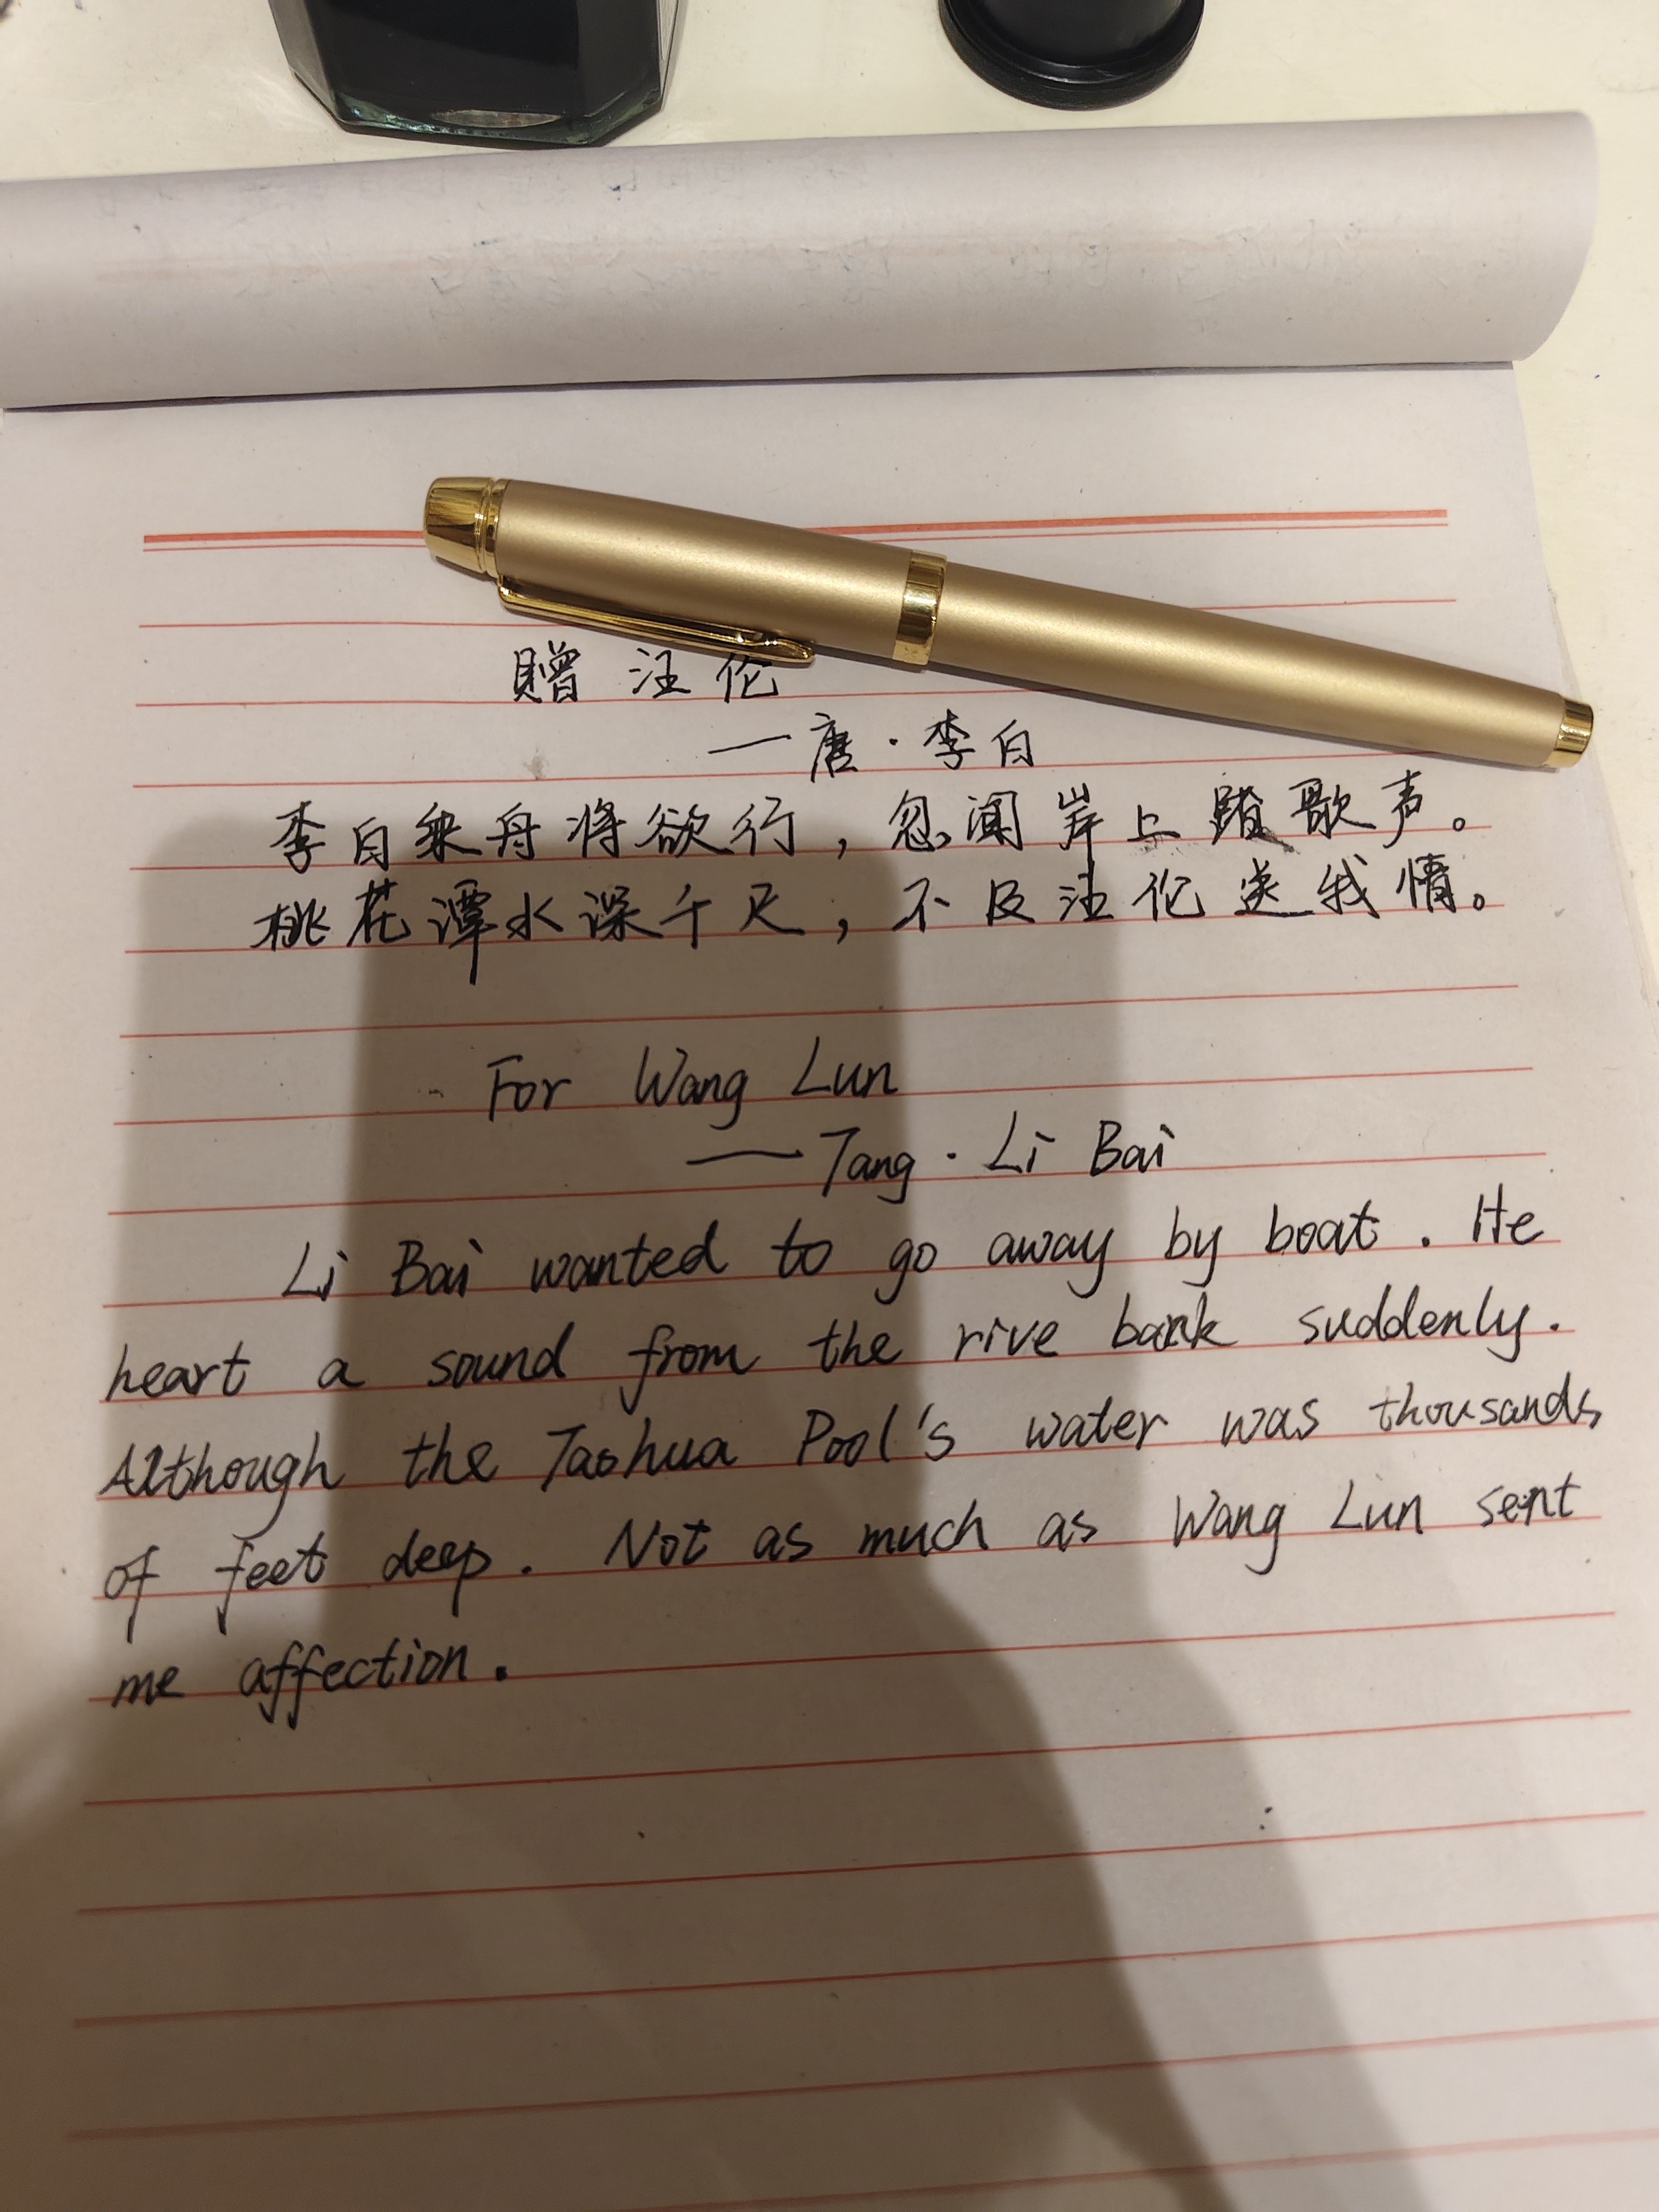 贈 汪 伦
—唐·李白
李白乘舟将欲行，忽闻岸上踏歌声。
桃花潭水深千尺，不及汪伦送我情。
For Wang Lun
—Tang · Li Bai
Li Bai wanted to go away by boat. He
heart a sound from the rive bank suddenly.
Although the Taohua Pool's water was thousands
of feet deep. Not as much as Wang Lun sent
me affection.